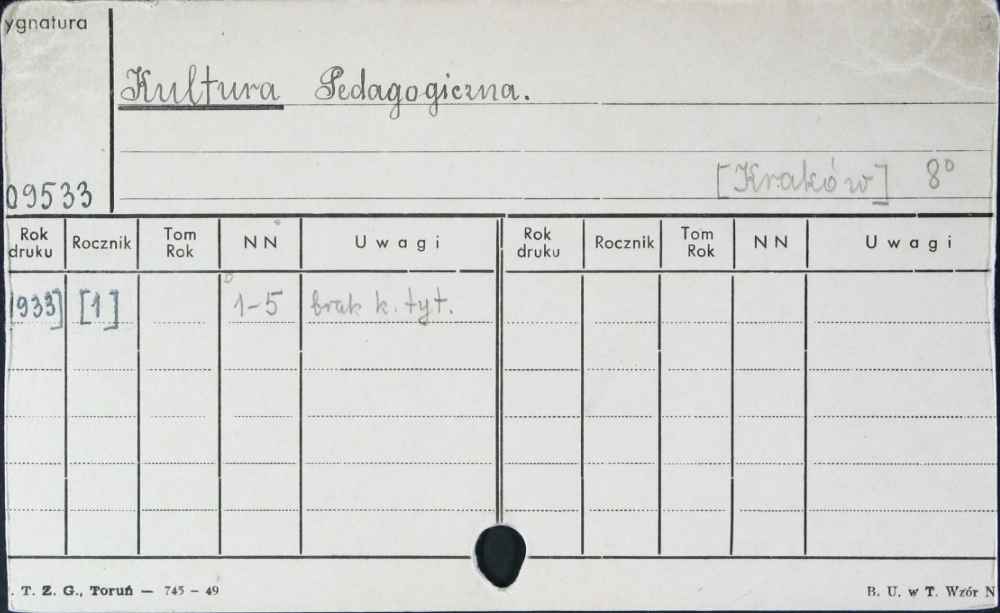 ygnatura
Kultura Pedagogiczna.
[Kraków] 8°
09533
Rok druku Rocznik Tom Rok NN Uwagi Rok druku Rocznik Tom Rok NN Uwagi
1933] [1] 1-5 brak k. tyt.
. T. Z. G., Toruń — 745 - 49 B. U. w T. Wzór N